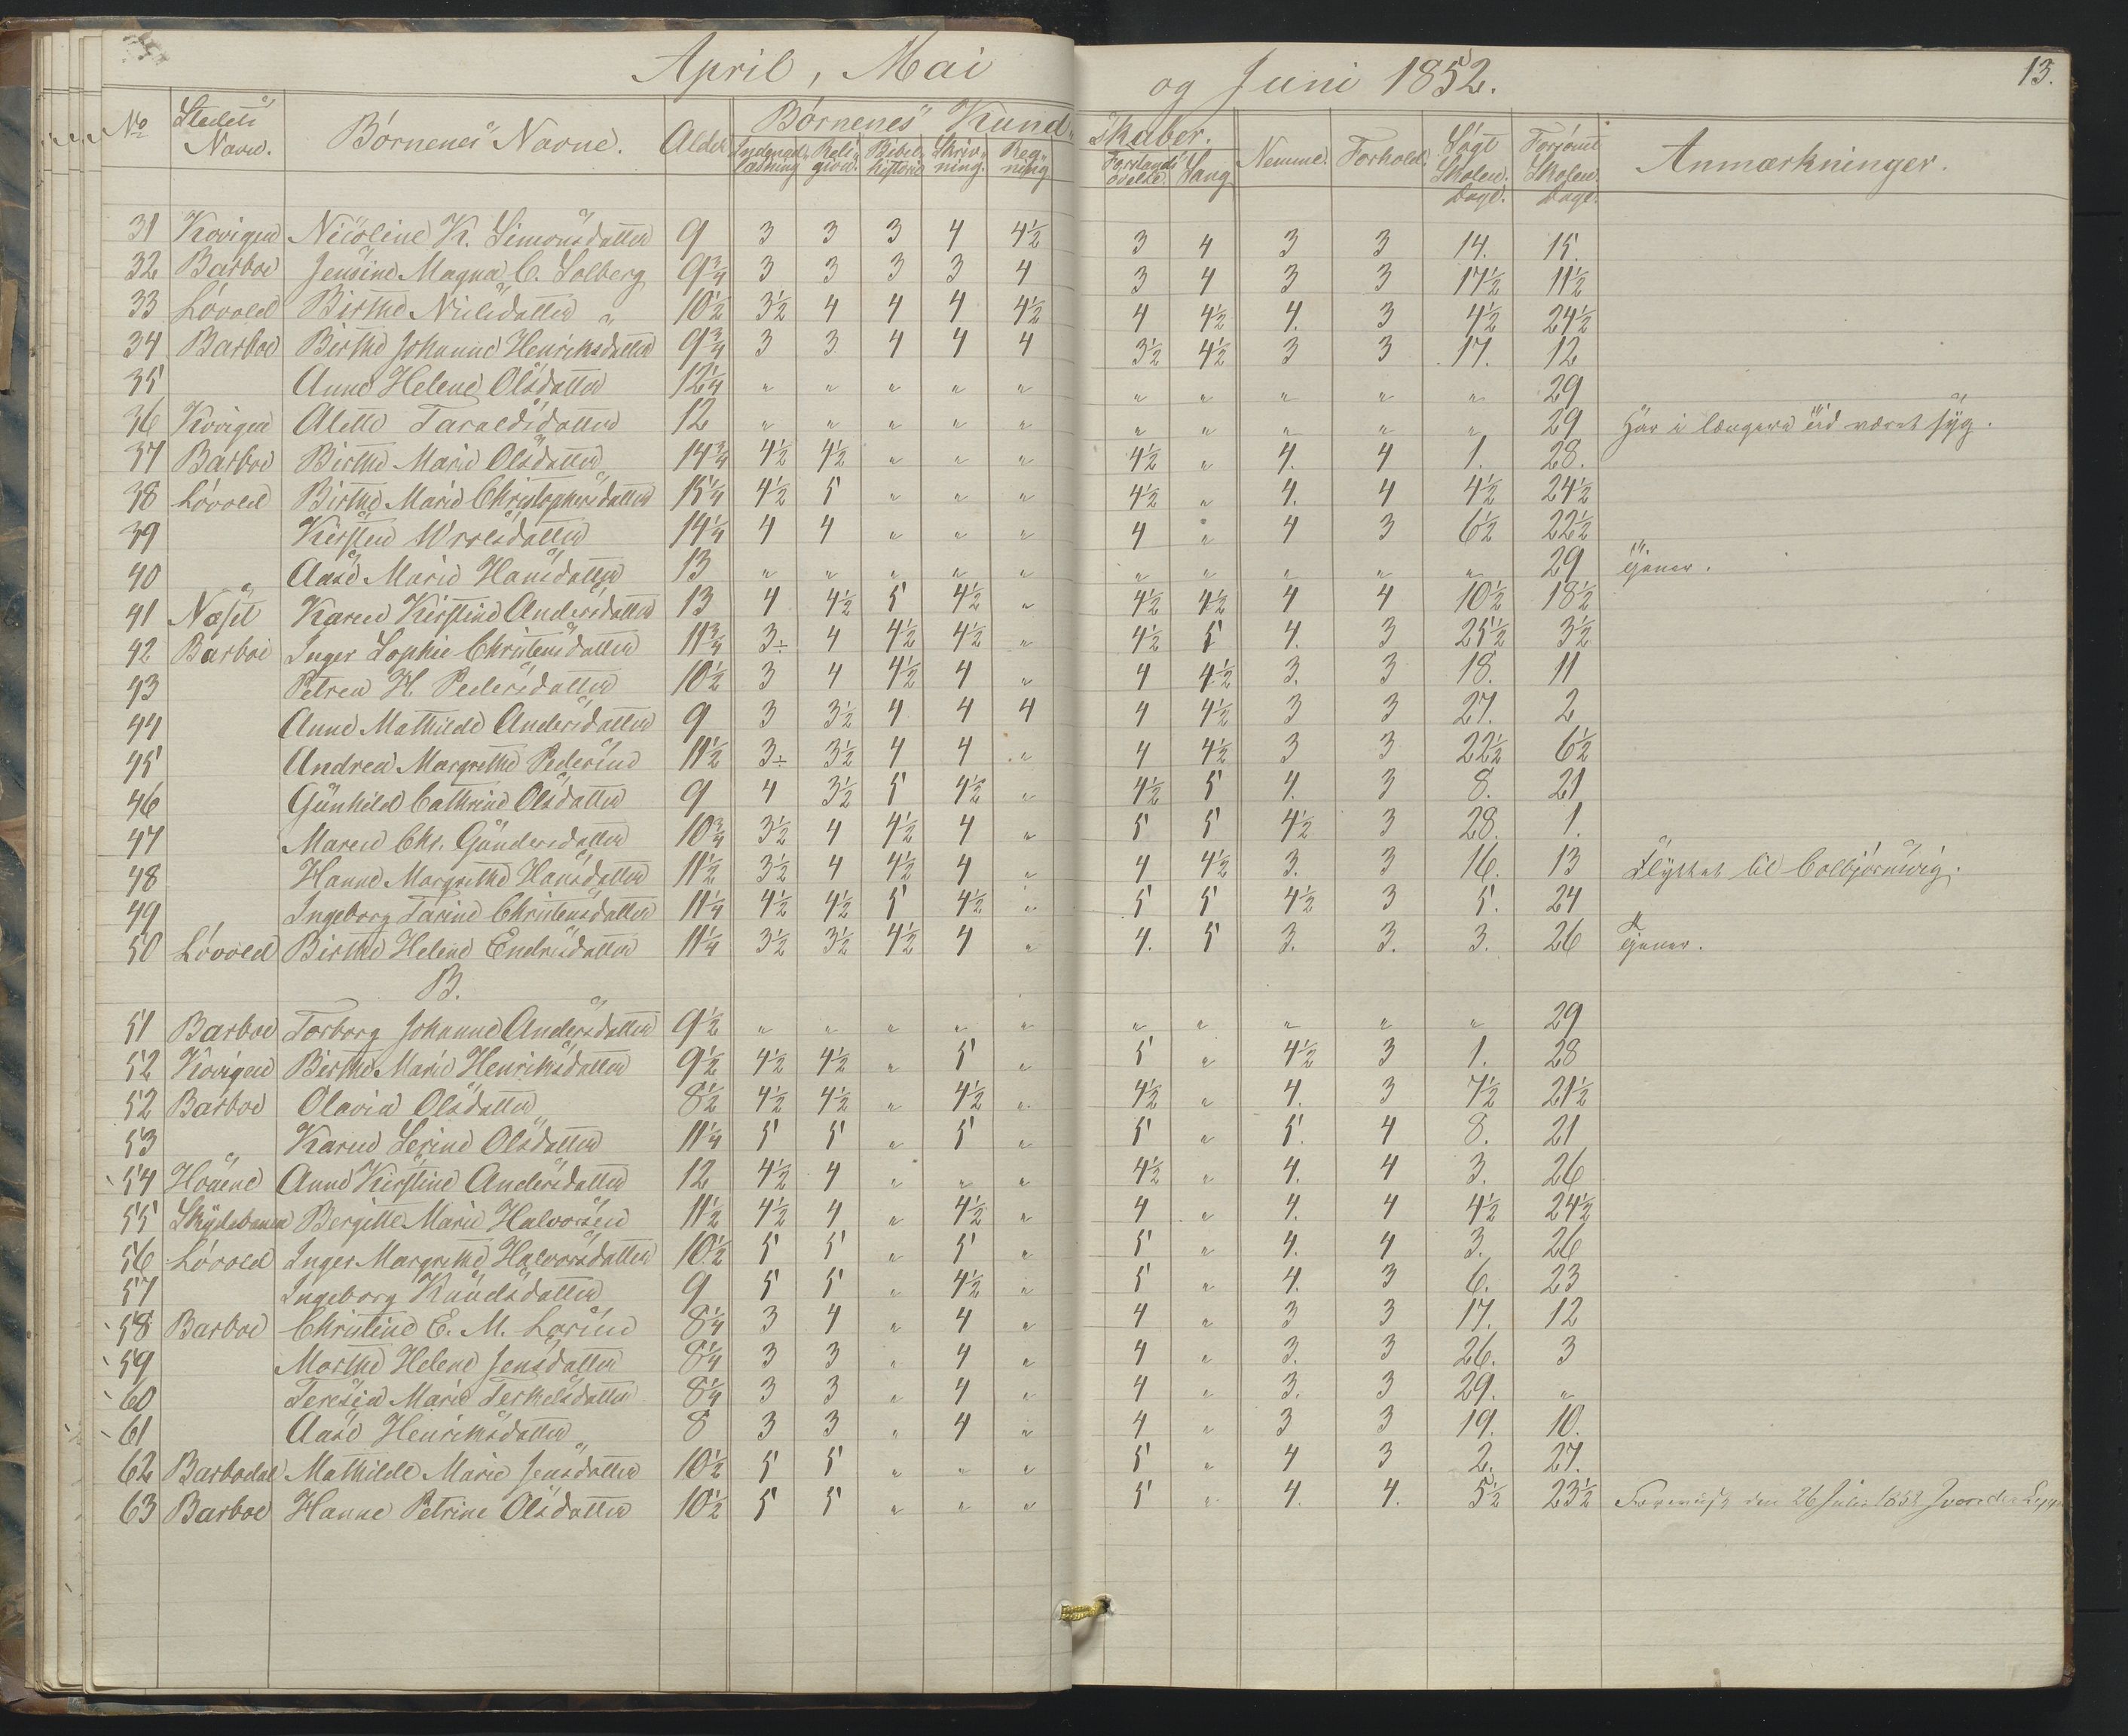 April, Mai og Juni 1852. 13.
No Stedets Navn. Børnenes Navne. Alder Børnenes Kundskaber. Nemme. Forhold. Søgt Skolen. Dage. Forsømt Skolen. Dage. Anmærkninger.
Indenad-Læsning Reli-gion. Bibel-historie Skriv-ning. Reg-ning Forstands øvelse. Sang
31 Kovigen Nicoline K. Simonsdatter 9 3 3 3 4 4½ 3 4 3 3 14. 15.
32 Barboe Jensine Magna C. Solberg 9¾ 3 3 3 3 4 3 4 3 3 17½ 11½
33 Lóvold Birthe Nielsdatter „ 10½ 3½ 4 4 4 4½ 4 4½ 4. 3 4½ 24½
34 Barboe Birthe Johanne Henriksdatter 9¾ 3 3 4 4 4 3½ 4½ 3 3 17. 12
35 Anne Helene Olsdatter 12¼ „ „ „ „ „ „ „ „ „ „ 29
36 Kovigen Alette Taraldsdatter 12 „ „ „ „ „ „ „ „ „ „ 29 Har i længere tid været syg.
37 Barboe Birthe Marie Olsdatter 14¾ 4½ 4½ „ „ „ 4½ „ 4. 4 1. 28.
38 Lóvold Birthe Marie Christophersdatter 15¼ 4½ 5 „ „ „ 4½ „ 4. 4 4½ 24½
39 Kirsten 14¼ 4 4 „ „ „ 4 „ 4 3 6½ 22½
40 Aase Marie Hansdatter 13 „ „ „ „ „ „ „ „ „ „ 29 tjener.
41 Næset Karen Kirstine Andersdatter 13 4 4½ 5 4½ „ 4½ 4½ 4 4 10½ 18½
42 Barboe Inger Sophie Christensdatter 11¾ 3÷ 4 4½ 4½ „ 4½ 5 4. 3 25½ 3½
43 Petrea H. Pedersdatter 10½ 3 4 4½ 4 „ 4 4½ 3. 3 18. 11
44 Anne Mathilde Andersdatter 9 3 3½ 4 4 4 4 4½ 3 3 27. 2
45 Andrea Margrethe Pedersen 11½ 3÷ 3½ 4 4 „ 4 4½ 3 3 22½ 6½
46 Gunhild Cathrine Olsdatter 9 4 3½ 5 4½ „ 4½ 5 4. 3 8. 21
47 Maren Chr. Gundersdatter 10¾ 3½ 4 4½ 4 „ 5 5 4½ 3 28. 1.
48 Hanne Margrethe Hansdatter 11½ 3½ 4 4½ 4 „ 4 4½ 3. 3 16. 13 Flyttet til Colbjørnsvig.
49 Ingeborg Tarine Christensdatter 11¼ 4½ 4½ 5 4½ „ 5 5 4½ 3 5. 24
50 Lóvold Birthe Helene Endresdatter 11¼ 3½ 3½ 4½ 4 „ 4. 5 3. 3. 3. 26 tjener.
B.
51 Barboe Torborg Johanne Andersdatter 9½ „ „ „ „ „ „ „ „ „ „ 29
52 Kovigen Birthe Marie Henriksdatter 9½ 4½ 4½ „ 5 „ 5 „ 4½ 3 1. 28
52 Barboe Olavia Olsdatter 8½ 4½ 4½ „ 4½ „ 4½ „ 4. 3 7½ 21½
53 Karen Serine Olsdatter 11¼ 5 5 „ 5 „ 5 „ 5. 4 8. 21
54 Anne Kirstine Andersdatter 12 4½ 4 „ „ „ 4½ „ 4. 4 3. 26
55 Skydebanen Bergitte Marie Halvorsen 11½ 4½ 4 „ 4½ „ 4 „ 4. 4 4½ 24½
56 Lóvold Inger Margrethe Halvorsdatter 10½ 5 5 „ 5 „ 5 „ 4. 4 3. 26
57 Ingeborg Knudsdatter 9 5 5 „ 4½ „ 5 „ 4. 3 6. 23
58 Barboe Christine E. M. Larsen 8¼ 3 4 „ 4 „ 4 „ 3 3 17. 12
59 Marthe Helene Jensdatter 8¼ 3 3 „ 4 „ 4 „ 3. 3 26. 3
60 Teresia Marie Terkelsdatter 8¼ 3 3 „ 4 „ 4 „ 3. 3 29. „
61 Aase Henriksdatter 8 3 3 „ 4 „ 4 „ 3 3 19. 10.
62 Barbodal Mathilde Marie Jensdatter 10½ 5 5 „ „ „ 5 „ 4 3 2. 27.
63 Barboe Hanne Petrine Olsdatter 10½ 5 5 „ „ „ 5 „ 4. 4. 5½ 23½ den 26 Juli